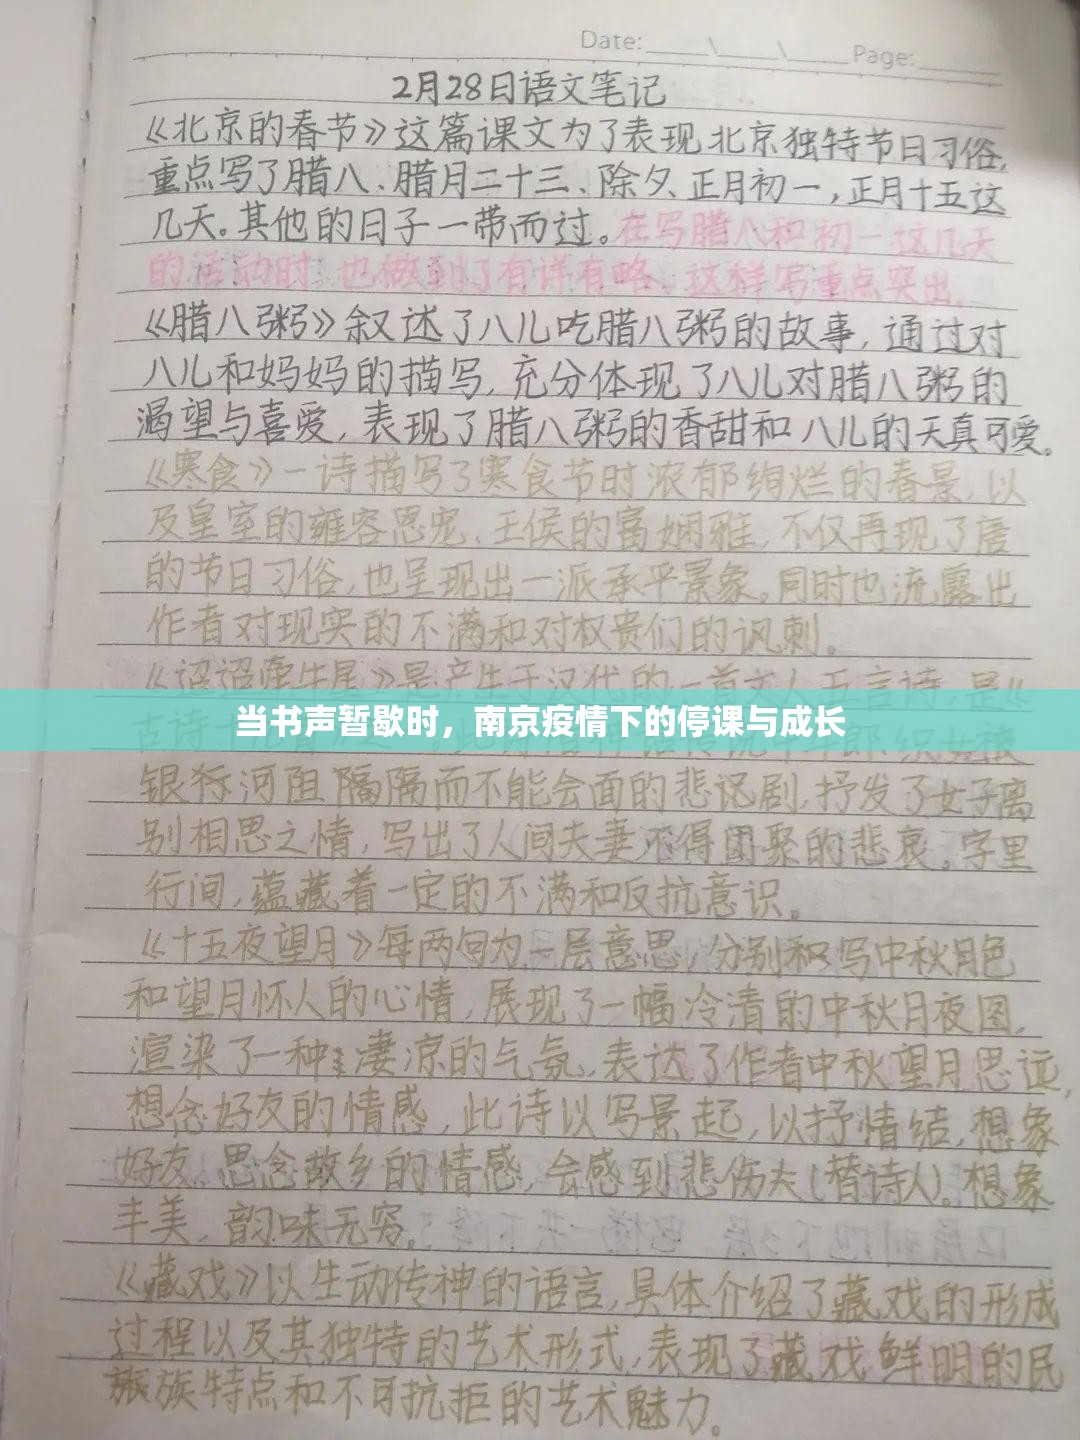 Date: Page:
2月28日语文笔记
《北京的春节》这篇课文为了表现北京独特节日习俗,
重点写了腊八、腊月二十三、除夕、正月初一,正月十五这
几天。其他的日子一带而过。在写腊八和初一这几天
的活动时,也做到了有详有略。这样写重点突出。
《腊八粥》叙述了八儿吃腊八粥的故事,通过对
八儿和妈妈的描写,充分体现了八儿对腊八粥的
渴望与喜爱,表现了腊八粥的香甜和八儿的天真可爱。
《寒食》一诗描写了寒食节时浓郁绚烂的春景,以
及皇室的雍容恩宠、王侯的富娴雅,不仅再现了唐
的节日习俗,也呈现出一派承平景象。同时也流露出
作者对现实的不满和对权贵们的讽刺。
《迢迢牵牛星》是产生于汉代的一首文人五言诗,是《
当书声暂歇时，南京疫情下的停课与成长
银河阻隔隔而不能会面的悲剧,抒发了女子离
别相思之情,写出了人间夫妻不得团聚的悲哀。字里
行间,蕴藏着一定的不满和反抗意识。
《十五夜望月》每两句为一层意思,分别和写中秋月色
和望月怀人的心情,展现了一幅冷清的中秋月夜图,
渲染了一种凄凉的气氛,表达了作者中秋望月思远,
想念好友的情感,此诗以写景起,以抒情结,想象
好友、思念故乡的情感,会感到悲伤夫(替诗人)。想象
丰美,韵味无穷。
《藏戏》以生动传神的语言,具体介绍了藏戏的形成
过程以及其独特的艺术形式,表现了藏戏鲜明的民
族特点和不可抗拒的艺术魅力。